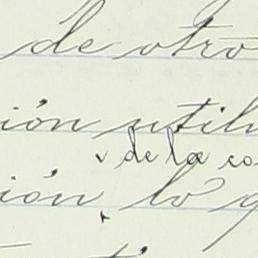 de otro
ión util
de la co
ión lo q